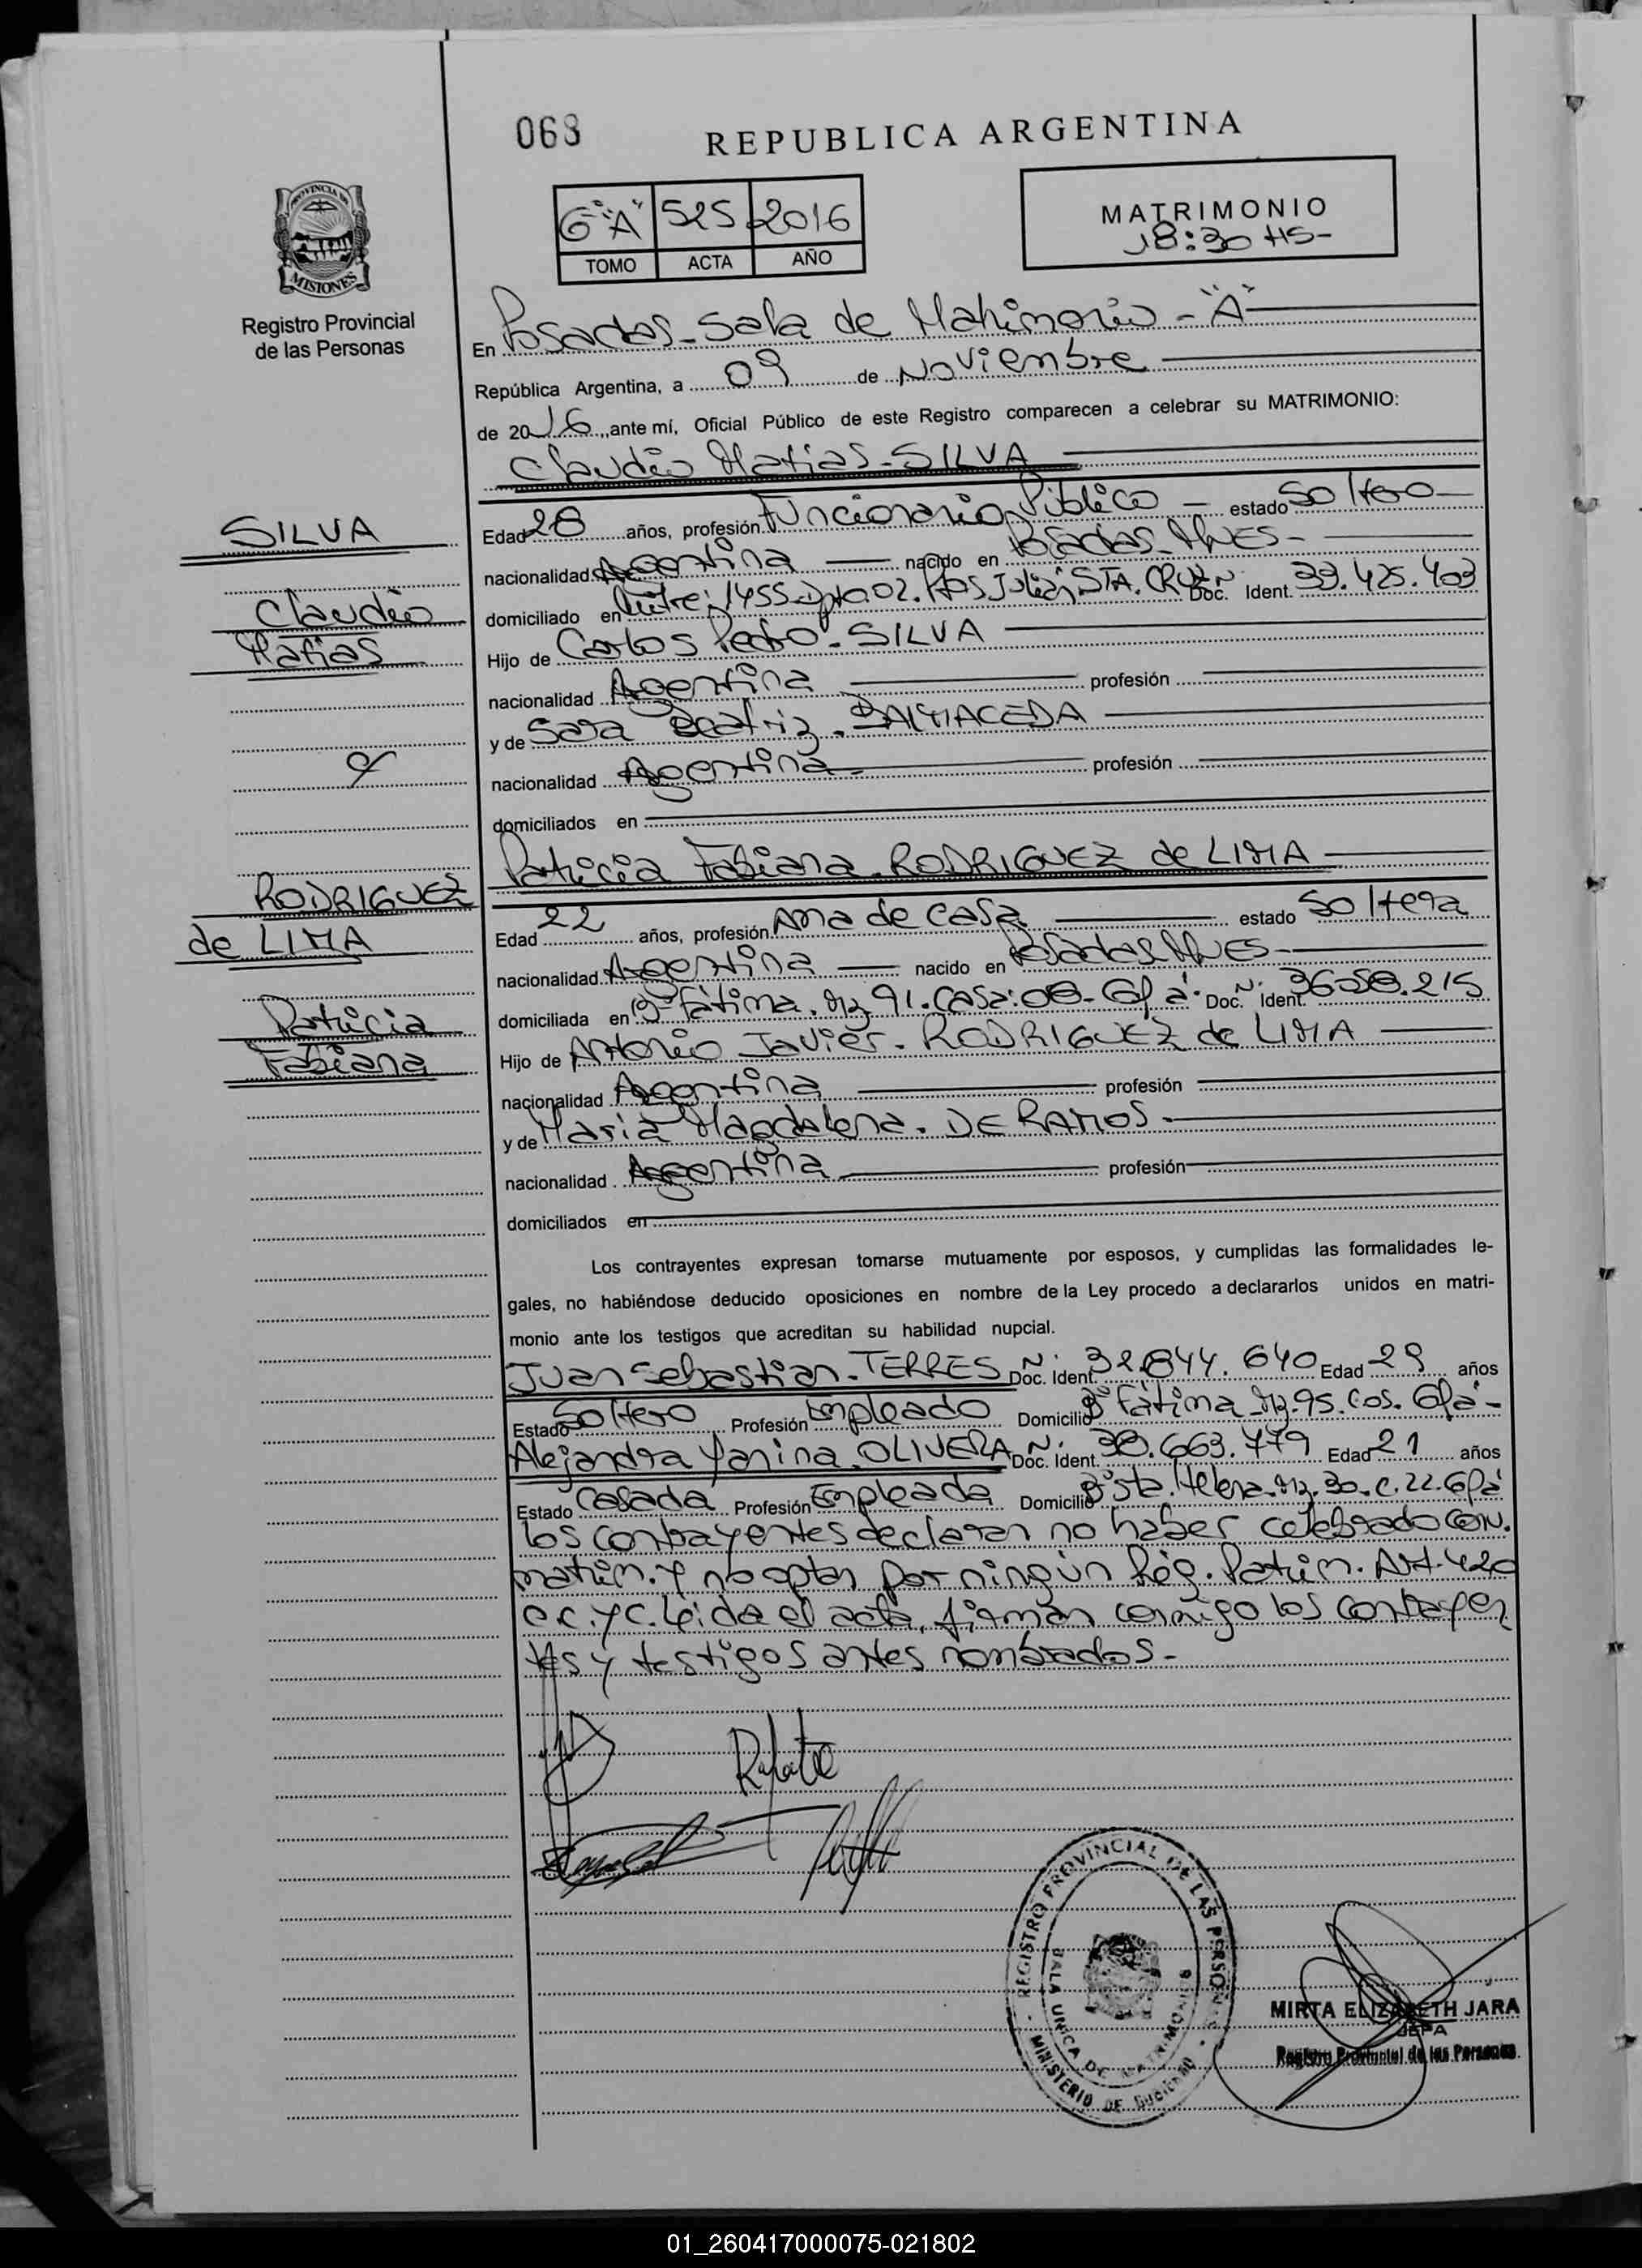 063
REPUBLICA ARGENTINA
PROVINCIA DE
MISIONES
Registro Provincial
de las Personas
6º "A" 525 2016
TOMO ACTA AÑO
MATRIMONIO
18:30 HS-
En Posadas - Sala de Matrimonio - "A"
República Argentina, a 09 de Noviembre
de 2016, ante mí, Oficial Público de este Registro comparecen a celebrar su MATRIMONIO:
Claudio Matias - SILVA
SILVA
Claudio
Matias
Edad 28 años, profesión Funcionario Público - estado Soltero
nacionalidad Argentina nacido en Posadas - Mnes -
domiciliado en Mitre: 1455 Dpto 02. Pto S Julián STA. CRUZ Nº Doc. Ident. 33.425.403
Hijo de Carlos Pedro - SILVA
nacionalidad Argentina profesión
y de Sara Beatriz - BALMACEDA
nacionalidad Argentina - profesión
domiciliados en
Patricia Fabiana - RODRIGUEZ de LIMA
RODRIGUEZ
de LIMA
Patricia
Fabiana
Edad 22 años, profesión Ama de casa estado Soltera
nacionalidad Argentina nacido en Posadas Mnes -
domiciliada en Bº Fátima. Mz 91. Casa: 08 - Gpá - Nº Doc. Ident.
Hijo de Antonio Javier - RODRIGUEZ de LIMA
nacionalidad Argentina profesión
y de Maria Magdalena. DE RAMOS -
nacionalidad Argentina profesión
domiciliados en
Los contrayentes expresan tomarse mutuamente por esposos, y cumplidas las formalidades le-
gales, no habiéndose deducido oposiciones en nombre de la Ley procedo a declararlos unidos en matri-
monio ante los testigos que acreditan su habilidad nupcial.
Juan Sebastian - TERRES Nº Doc. Ident. 32.844.640 Edad 29 años
Estado Soltero Profesión Empleado Domicilio Bº Fátima Mz. 95. Gpá -
Alejandra Yanina. OLIVERA Nº Doc. Ident. 38.663.779 Edad 21 años
Estado Casada Profesión Empleada Domicilio Bº Sta. Helena. Mz. 30. C. 22. Gpá
los contrayentes declaran no haber celebrado CON.
matrim. y no optan por ningún Rég. Patrim. Art. 420
C.C. y C. Leída el acta, firman conmigo los contrayen
tes y testigos antes nombrados -
REGISTRO PROVINCIAL DE LAS PERSONAS
SALA UNICA DE MATRIMONIOS
MINISTERIO DE GOBIERNO
MIRTA ELIZABETH JARA
JEFA
Registro Provincial de las Personas
01_260417000075-021802